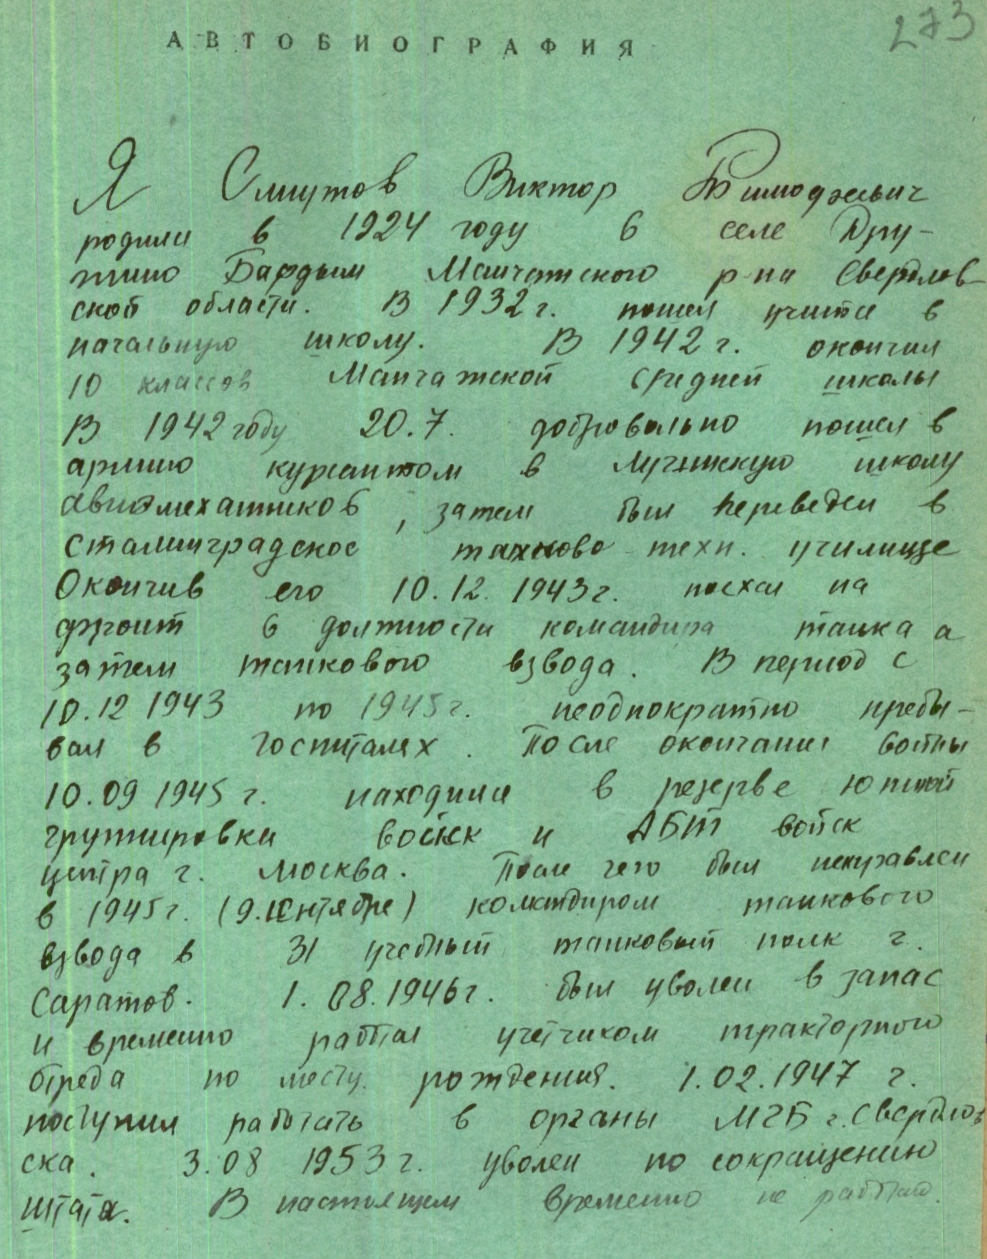 273
АВТОБИОГРАФИЯ
Я Смутов Виктор
родился в 1924 году в селе Дру-
жино Бардым Манчажского р-на Свердлов-
ской области. В 1932 г. пошел учится в
начальную школу. В 1942 г. окончил
10 классов Манчажской средней школы
В 1942 году 20.7. добровольно пошел в
армию курсантом в школу
авиамехаников, затем был переведен в
Сталинградское танково-техн. училище
Окончив его 10.12.1943 г. поехал на
фронт в должности командира танка а
затем танкового взвода. В период с
10.12 1943 по 1945 г. неоднократно пребы-
вал в госпиталях. После окончание войны
10.09 1945 г. находился в резерве южной
группировки войск и АБТ войск
центра г. Москва. После чего был направлен
в 1945 г. (9. сентября) командиром танкового
взвода в 31 учебный танковый полк г.
Саратов. 1.08.1946 г. был уволен в запас
и временно работал учетчиком тракторного
отряда по месту рождения. 1.02.1947 г.
поступил работать в органы МГБ г. Свердлов
ска. 3.08 1953 г. уволен по сокращению
штата. В настоящем временно не работаю.